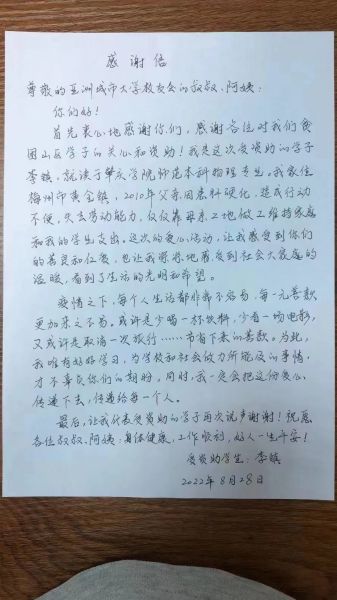 感谢信
尊敬的亚洲城市大学校友会的叔叔、阿姨：
你们好！
首先衷心地感谢你们，感谢各位对我们贫
困山区学子的关心和资助！我是这次受资助的学子
李镇，就读于肇庆学院师范本科物理专业。我家住
梅州市黄金镇，2010年父亲因患科硬化，造成行动
不便，失去劳动能力，仅仅靠母亲工地做工维持家庭
和我的学生支出。这次的爱心活动，让我感受到你们
的善良和仁爱，也让我深深地感受到社会大家庭的
温暖，看到了生活的光明和希望。
疫情之下，每个人生活都非常不容易，每一元善款
更加来之不易。或许是少喝一杯饮料，少看一场电影，
又或许是取消一次旅行……节省下来的善款。为此，
我唯有好好学习，为学校和社会做力所能及的事情，
才不辜负你们的期盼。同时，我一定会把这份爱心
传递下去，传递给每一个人。
最后，让我代表受资助的学子再次说声谢谢！祝愿
各位叔叔、阿姨：身体健康，工作顺利，好人一生平安！
受资助学生：李镇
2022年8月28日